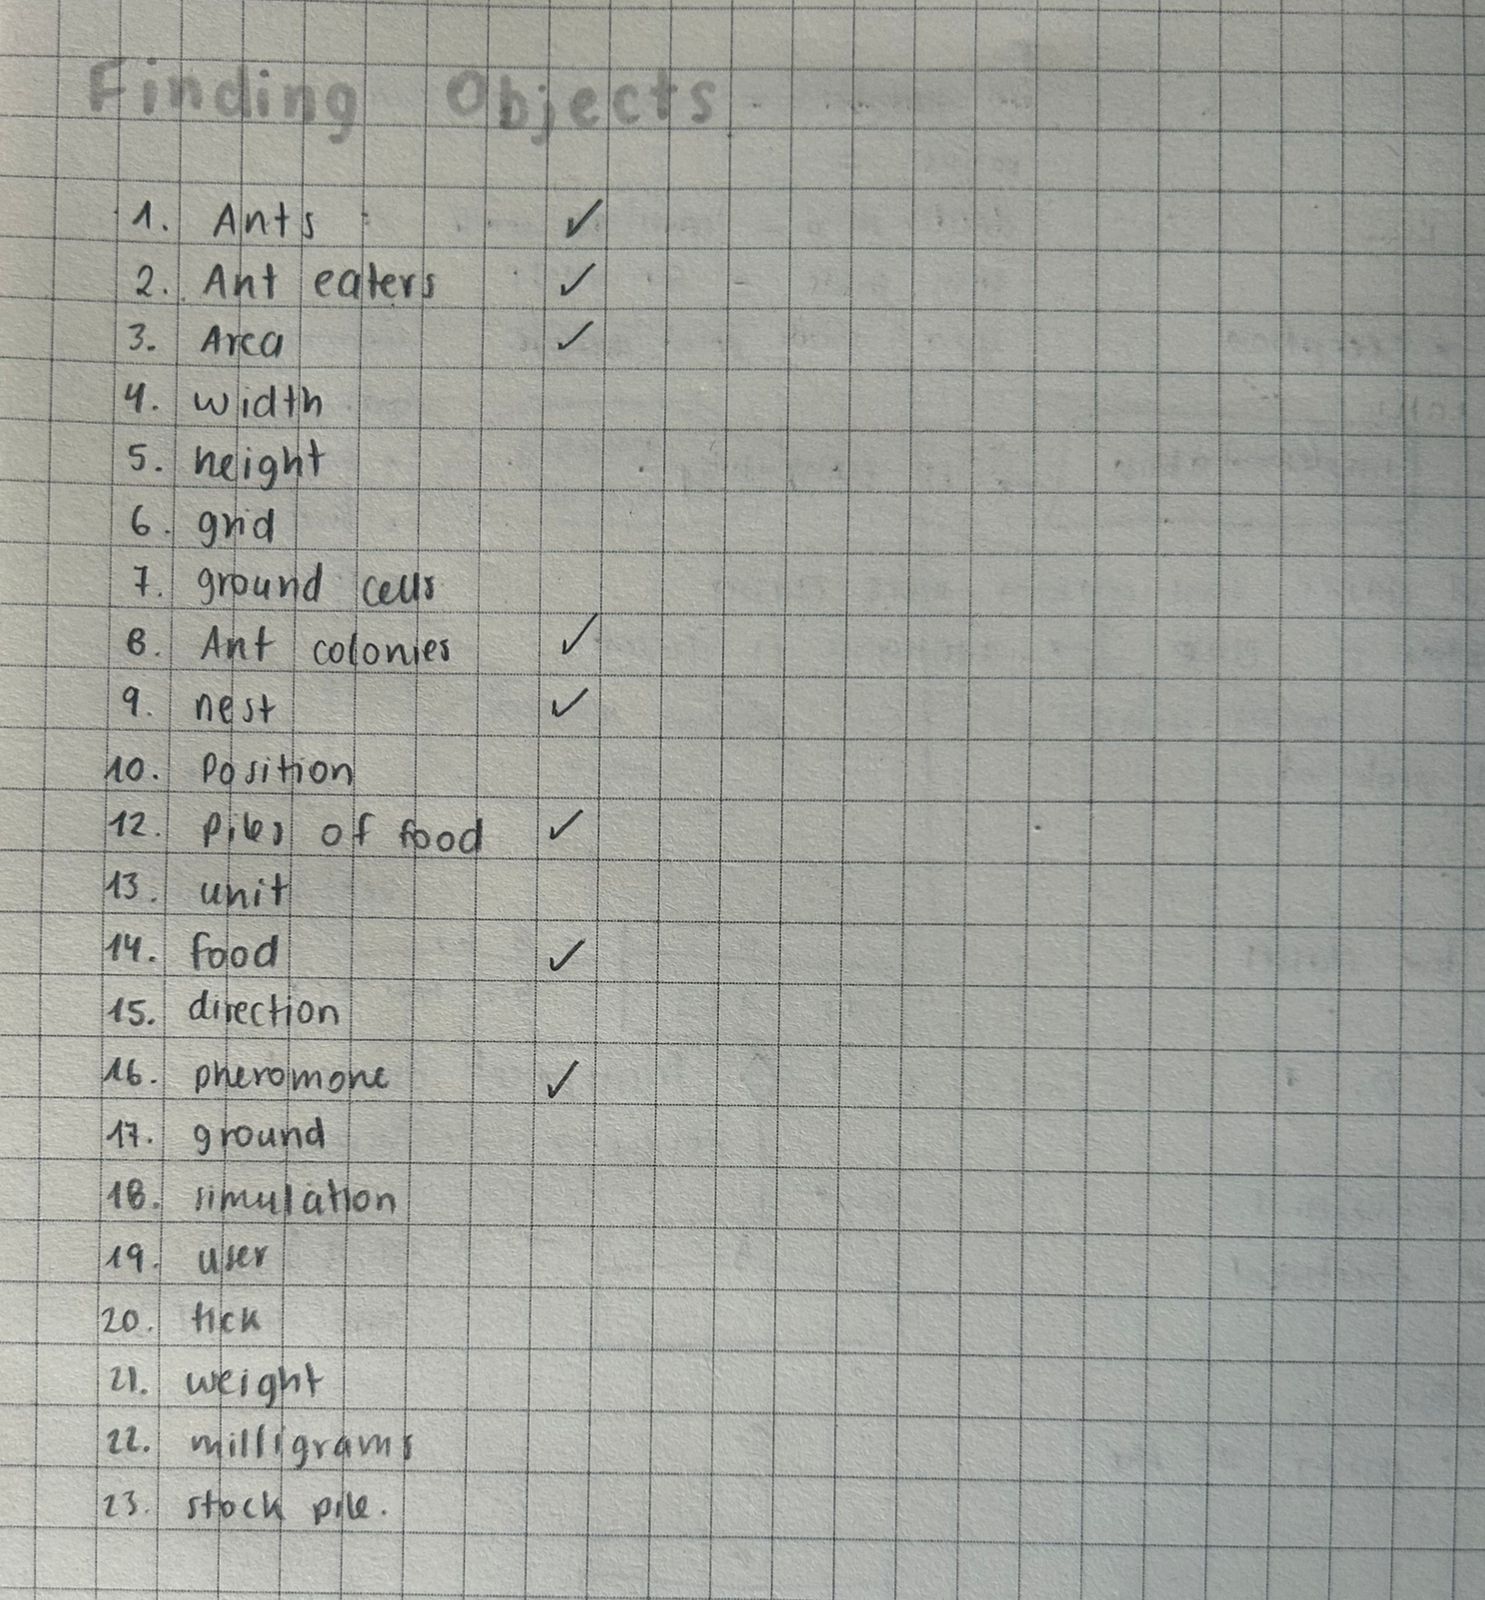 Finding Objects
1. Ants ✓
2. Ant eaters ✓
3. Area ✓
4. width
5. height
6. grid
7. ground cells
8. Ant colonies ✓
9. nest ✓
10. Position
12. Piles of food ✓
13. unit
14. food ✓
15. direction
16. pheromone ✓
17. ground
18. simulation
19. user
20. tick
21. weight
22. milligrams
23. stock pile.